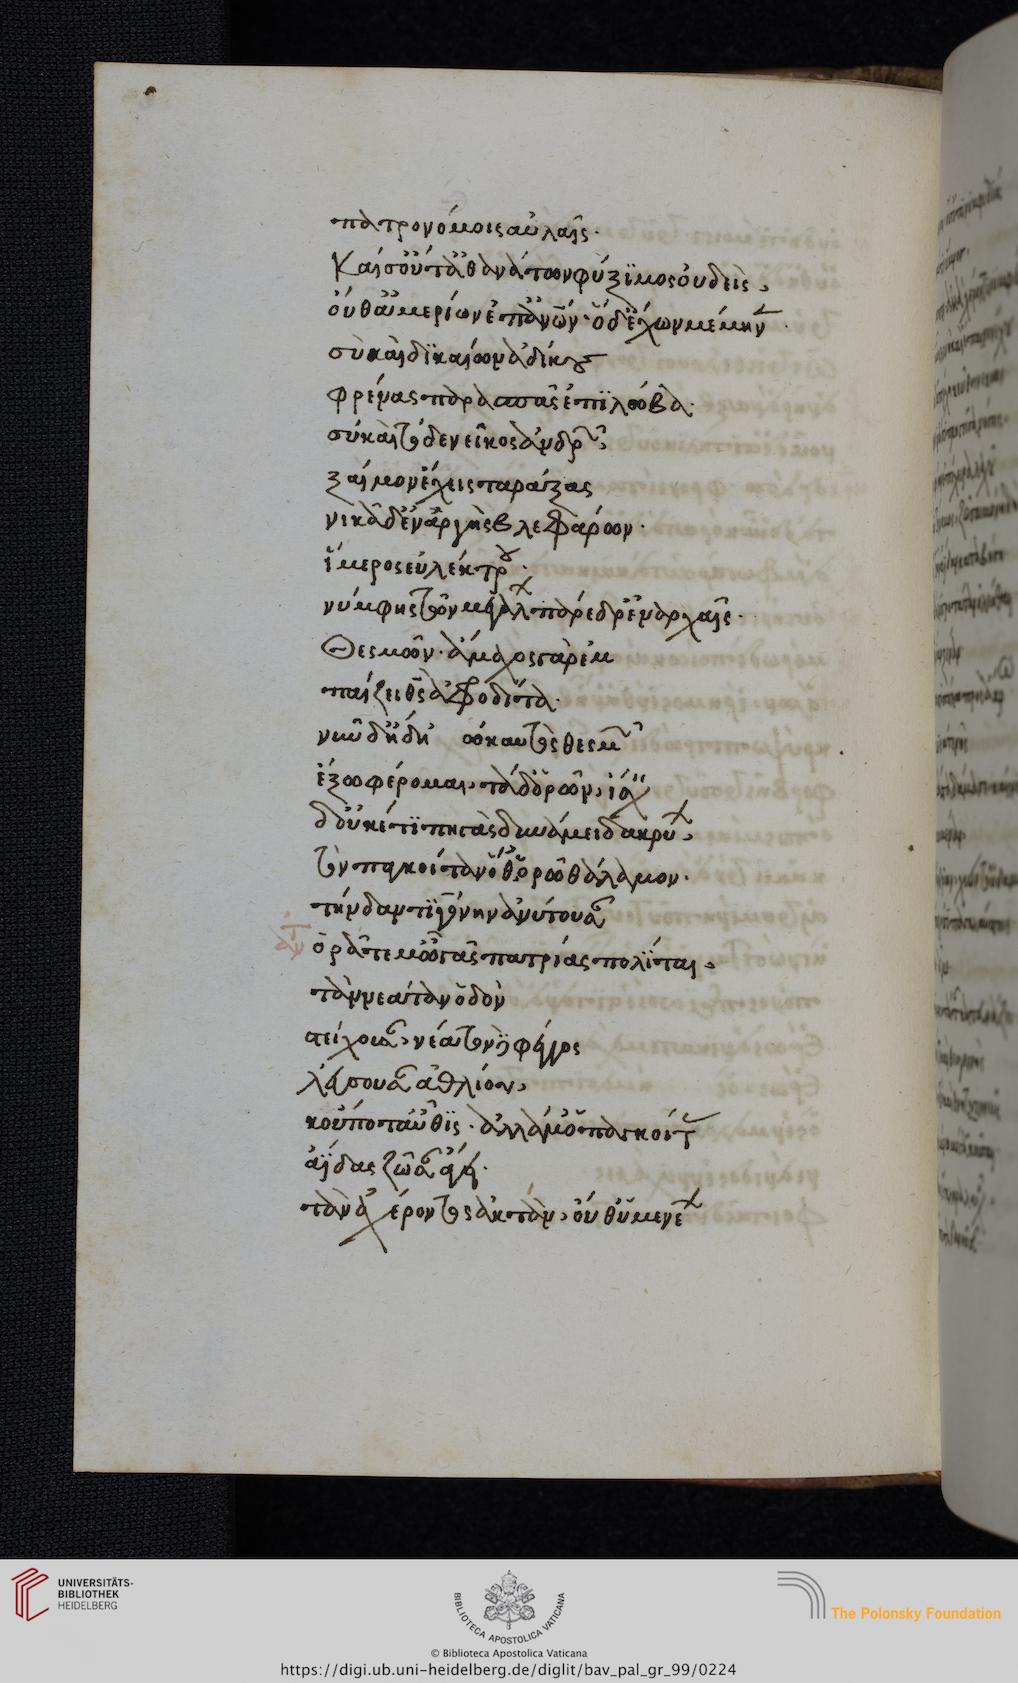 πατρονόμοις αὐλαῖς·
καί σ' οὔτ' ἀθανάτων φύξιμος οὐδεὶς,
οὔθ' ἁμερίων ἐπ' ἀνῶν· ὁ δ' ἔχων μέμην
σὺ καὶ δικαίων ἀδίκους
φρένας παρασπᾶς ἐπὶ λώβα·
σὺ καὶ τόδε νεῖκος ἀνδρῶν
ξαίμον ἔχεις ταράξας
νικᾶ δ' ἐναργὴς βλεφάρων·
ἵμερος εὐλέκτρου·
νύμφης τῶν μεγάλ πάρεδρ ἐν ἀρχαῖς·
θεσμῶν· ἄμαχος γὰρ ἐμ
παίζει θς ἀφροδίτα·
νῦν δ' ἤδη ὠ καυτὸς θεσμῶν
ἔξω φέρομαι, τάδ' ὁρῶν, ἰσχ
δ' οὐκέτι πηγὰς δύναμαι δακρυ,
τὸν παγκοίταν ὅθ' ὁρῶ θάλαμον·
τήνδ' αντιγόνην ἀνύτουσαν
ὁρᾶτέ μ' ὦ γᾶς πατρίας πολῖται,
τὰν νεάταν ὁδὸν
στείχουσαν, νέατον δὲ φέγγος
λεύσουσαν ἀελίου,
κοὔποτ' αὖθις· ἀλλά μ' ὁ παγκοίτας
ἀΐδας ζῶσαν ἄγει·
τὰν ἀχέροντος ἀκτὰν, οὔθ' ὑμεν
UNIVERSITÄTS-
BIBLIOTHEK
HEIDELBERG
BIBLIOTECA APOSTOLICA VATICANA
The Polonsky Foundation
© Biblioteca Apostolica Vaticana
https://digi.ub.uni-heidelberg.de/diglit/bav_pal_gr_99/0224